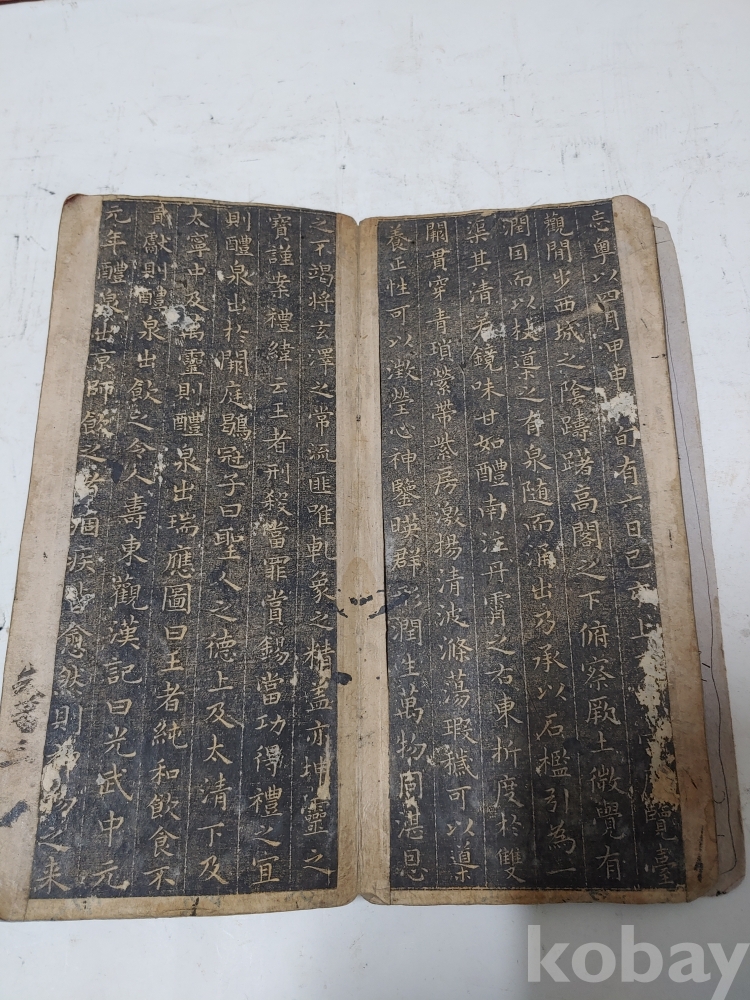 忘粤以四月甲申 旬有六日己 上 覽臺
觀閒步西城之陰躊躇高閣之下俯察厥土微覺有
潤因而以杖導之有泉隨而涌出乃承以石檻引為一
渠其清若鏡味甘如醴南注丹霄之右東折度於雙
闕貫穿青瑣縈帶紫房激揚清波滌蕩瑕穢可以導
養正性可以澂瑩心神鑒暎群形潤生萬物同湛恩
之不竭將玄澤之常流匪唯乹象之精盖亦坤靈之
寶謹案禮緯云王者刑殺當罪賞錫當功得禮之宜
則醴泉出於闕庭鶡冠子曰聖人之德上及太清下及
太寧中及萬靈則醴泉出瑞應圖曰王者純和飲食不
貢獻則醴泉出飲之令人壽東觀漢記曰光武中元
元年醴泉出京師飲之者痼疾 愈然則 物之来
kobay